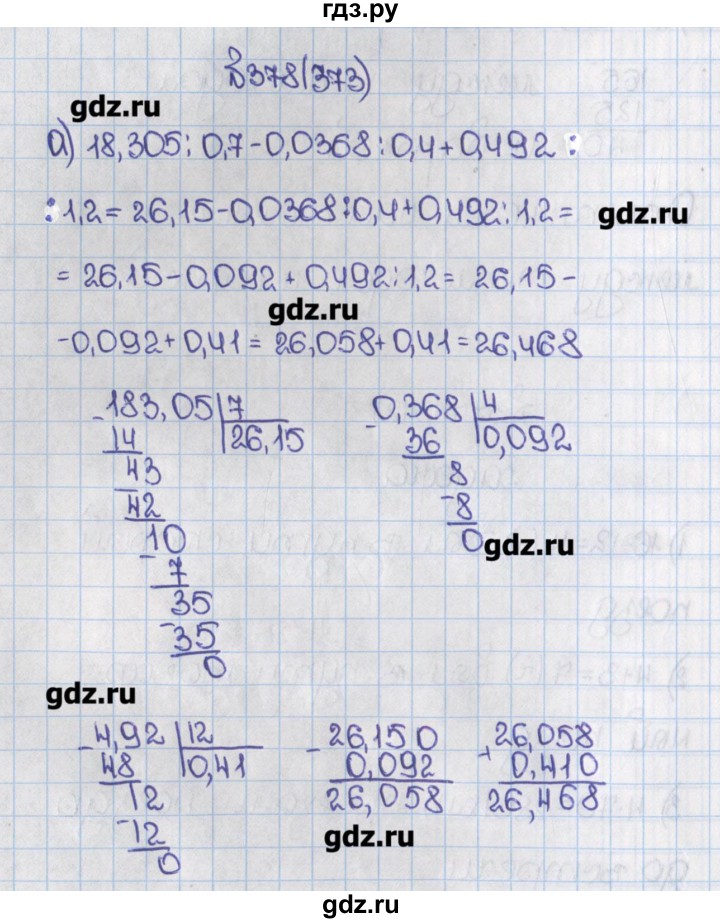 гдз.ру
№378(373)
gdz.ru
а) 18,305:0,7-0,0368:0,4+0,492 :
:1,2=26,15-0,0368:0,4+0,492:1,2=
gdz.ru
=26,15-0,092+0,492:1,2=26,15-
gdz.ru
-0,092+0,41=26,058+0,41=26,468
-183,05|7
14
26,15
-43
42
-10
7
-35
35
0
-0,368|4
36
0,092
-8
8
0
gdz.ru
gdz.ru
-4,92|12
48
0,41
-12
12
0
-26,150
0,092
26,058
+26,058
0,410
26,468
gdz.ru